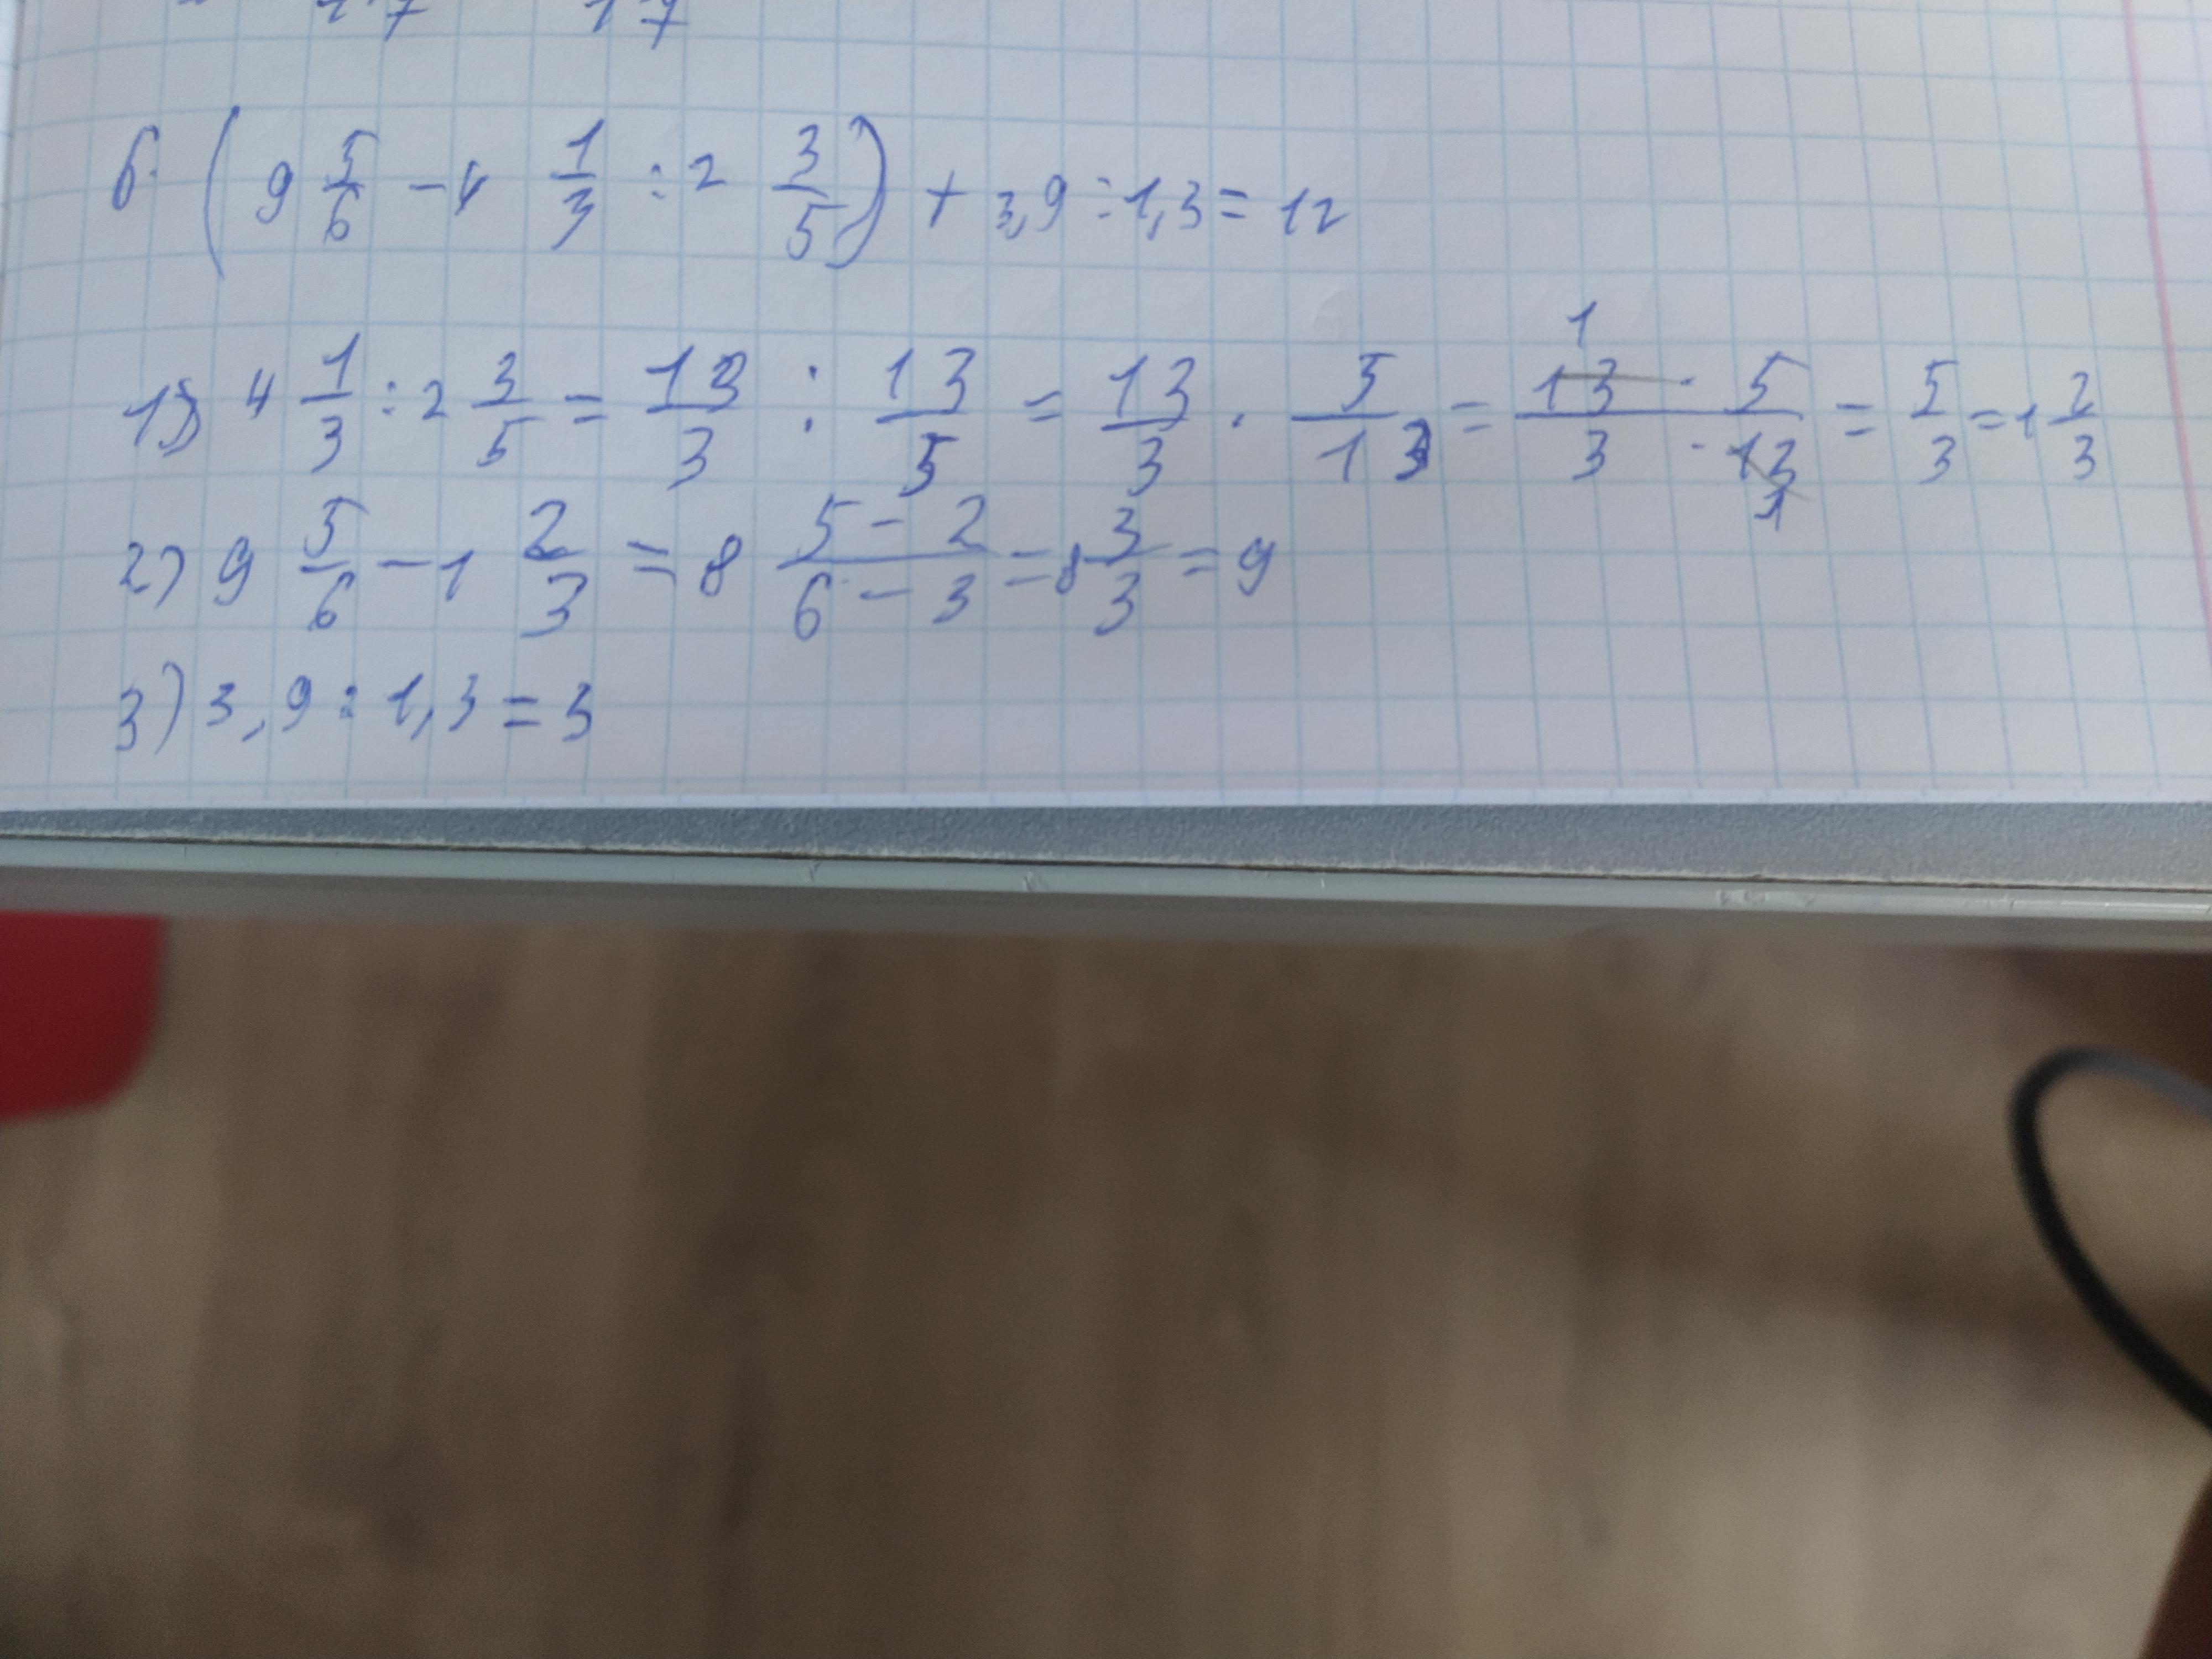 17 17
6. (9 5/6 - 4 1/3 : 2 3/5) + 3,9 : 1,3 = 12
1) 4 1/3 : 2 3/5 = 13/3 : 13/5 = 13/3 · 5/13 = 13 · 5 / 3 · 13 = 5/3 = 1 2/3
1
1
2) 9 5/6 - 1 2/3 = 8 5 - 2 / 6 - 3 = 8 3/3 = 9
3) 3,9 : 1,3 = 3